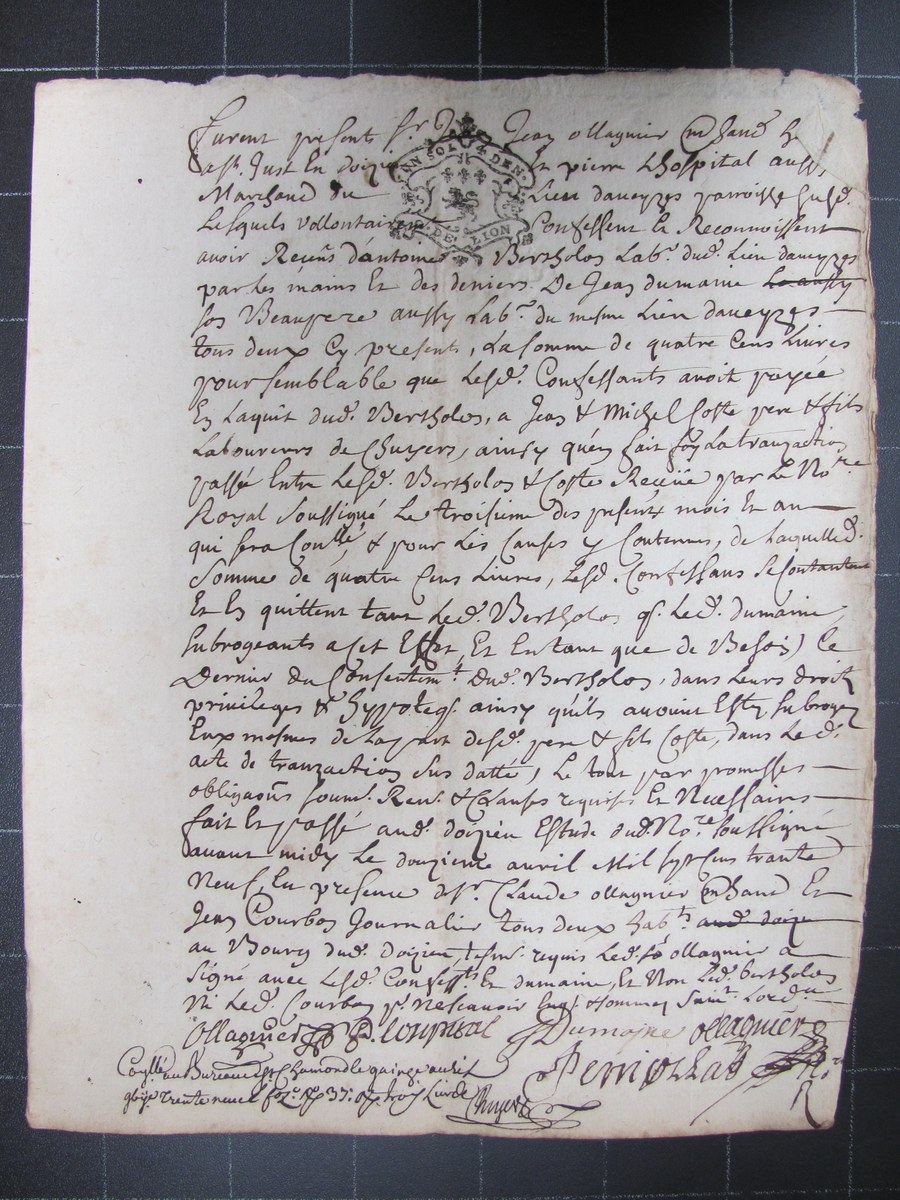 Furent presents Sr Jean ollagnier mchand
St. Just En doizieu Et pierre Lhospital aussy
Marchand du Lieu daveyzes parroisse susd.
Lesquels vollontairemt Confessent et Reconnoissent
avoir Receus d'antoine Bertholos Labr. dud. Lieu daveyzes
par les mains Et des deniers De Jean dumaine
son Beaupere aussy Labr. du mesme Lieu daveyzes
tous deux Cy presents, La somme de quatre Cens Livres
pour semblable que Lesd. Confessants avoit payée
En Laquit dud. Bertholos, a Jean & Michel Coste pere & fils
Laboureurs de Chuyers, ainsy quen fait foy La tranzaction
passé Entre Lesd. Bertholos & Coste Receüe par Le Nore
Royal soussigné Le troisieme des presents mois Et an
qui sera Conllé, & pour Les Causes y Contenues, de Laquelled.
somme de quatre Cens Livres, Lesd. Confessans se Contantent
Et En quittent tant Led. Bertholos q. Led. dumaine
subrogeants a Cet Effet, Et En tant que de Besoin Ce
Dernier du Consentemt. Dud. Bertholos, dans Leurs droits
privileges & hyppoteq. ainsy quils avoient Estes subrogez
Eux mesmes de La part desd. pere & fils Coste, dans Led.
acte de tranzaction sus datté, Le tout par promesses
obligaons soum. Ren. & Clauses requises Et Necessaires
fait Et passé aud. doizieu Estude dud. Nore soussigné
avant midy Le douzieme avril Mil sept cens trante
Neuf, En presence de Sr. Claude ollagnier mchand Et
Jean Courbon Journalier tous deux habts aud. doizieu
au Bourg dud. doizieu, tesm. requis Led. Sr ollagnier a
signé avec Lesd. Confessts Et dumaine, Et Non Led. bertholos
Ni Led. Courbon pr. Ne scavoir Enq. & sommes
Ollagnier P. Lospital JDumaine ollagnier
Perrochatt Nore
Conllé au Bureau de St Chamond le quinze avril
trente neuf trois Livres
UN SOL 4 DEN.
G. DE LION